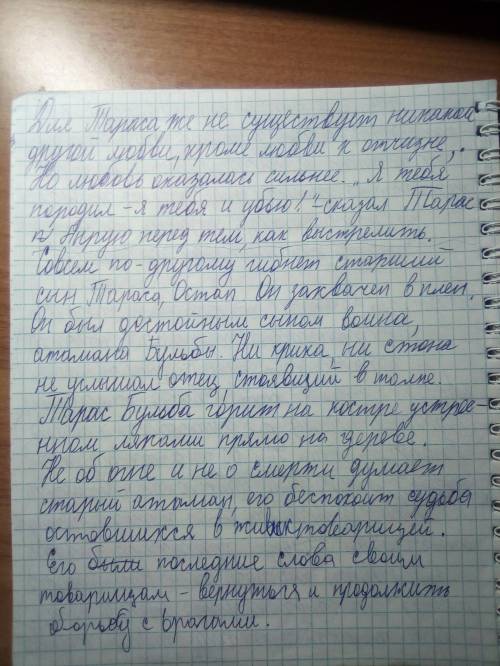 Для Тараса же не существует никакой
другой любви, кроме любви к отчизне,.
Но любовь оказалась сильнее. "Я тебя
породил - я тебя и убью!" - сказал Тарас
Андрую перед тем, как выстрелить.
Совсем по-другому гибнет старший
сын Тараса, Остап. Он захвачен в плен.
Он был достойным сыном воина,
атамана Бульбы. Ни крика, ни стона
не услышал отец, стоявший в толпе.
Тарас Бульба горит на костре устрое-
нном ляхами прямо на дереве.
Не об огне и не о смерти думает
старый атаман, его беспокоит судьба
оставшихся в живых товарищей.
Его были последние слова своим
товарищам - вернуться и продолжить
борьбу с врагами.